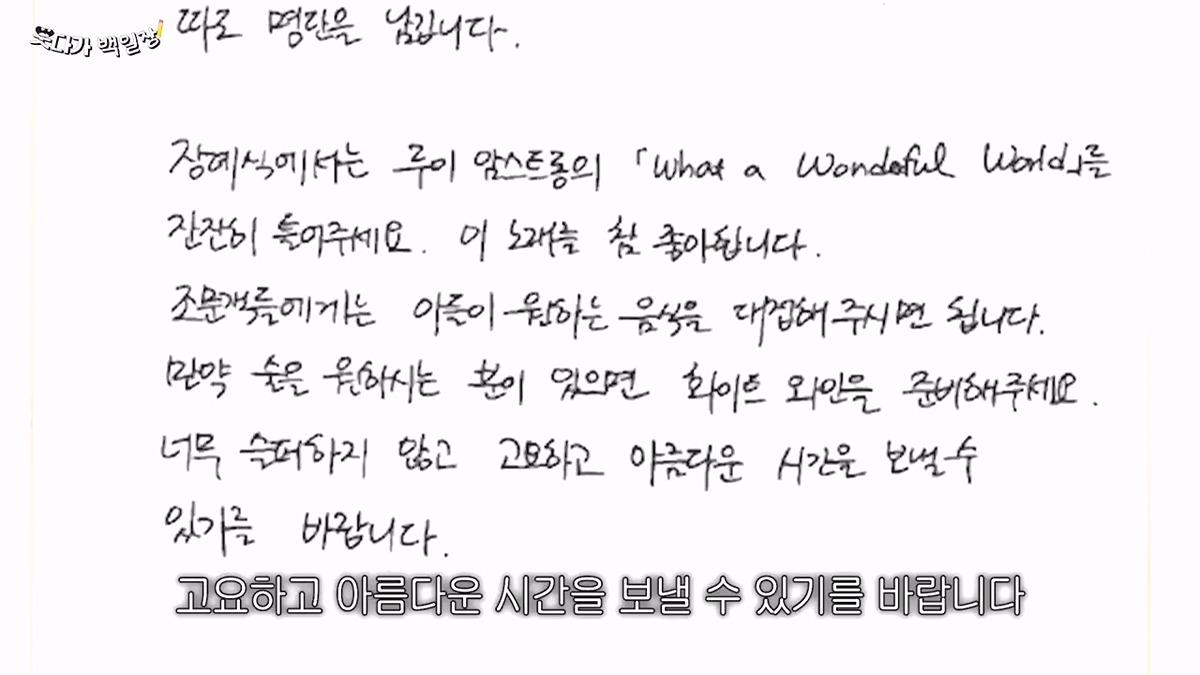 웃다가 백일장
따로 명단을 남깁니다.
장례식에서는 루이 암스트롱의 「What a Wonderful World」를
잔잔히 틀어주세요. 이 노래를 참 좋아합니다.
조문객들에게는 아들이 원하는 음식을 대접해주시면 됩니다.
만약 술을 원하시는 분이 있으면 화이트 와인을 준비해주세요.
너무 슬퍼하지 않고 고요하고 아름다운 시간을 보낼 수
있기를 바랍니다.
고요하고 아름다운 시간을 보낼 수 있기를 바랍니다